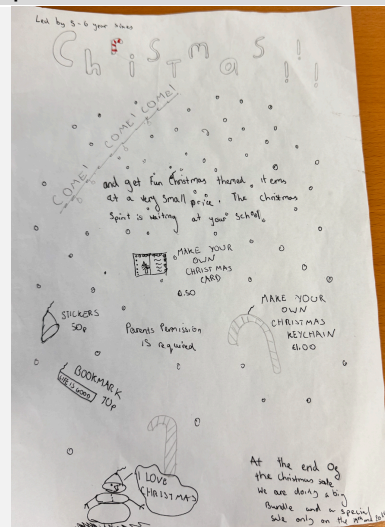 Led by 5-6 year
Christmas!!!
COME! COME! COME!
and get Fun Christmas themed items
at a very small price. The christmas
Spirit is waiting at your school.
MAKE YOUR
OWN
CHRISTMAS
CARD
0.50
STICKERS
50p
Parents Permission
is required
MAKE YOUR
OWN
CHRISTMAS
KEYCHAIN
£1.00
BOOKMARK
LIFE IS GOOD
70p
I LOVE
CHRISTMAS
At the end Of
the christmas sale
We are doing a big
Bundle and a special
Sale only on the 19th and